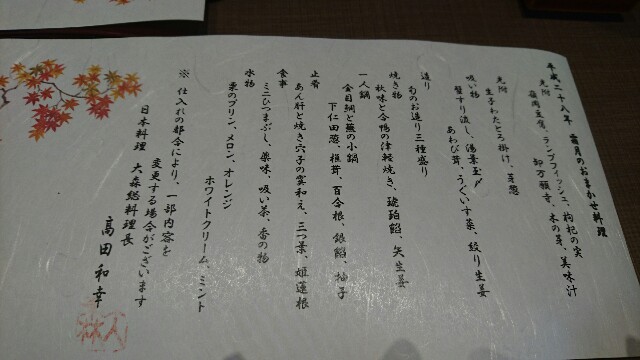 平成二十八年 霜月のおまかせ料理
先附
豆腐、ランプフィッシュ、枸杞の実
卸万願寺、木の芽、美味汁
先附
生子わたとろ掛け、芽葱
吸い物
蟹すり流し、湯葉玉〆
あわび茸、うぐいす菜、絞り生姜
造り
旬のお造り三種盛り
焼き物
秋味と合鴨の津軽焼き、琥珀餡 矢生姜
一人鍋
金目鯛と蕪の小鍋
下仁田葱、椎茸、百合根、銀餡、柚子
止肴
あん肝と焼き穴子の霙和え、三つ葉、姫蓮根
食事
ミニひつまぶし、薬味、吸い茶、香の物
水物
栗のプリン、メロン、オレンジ
ホワイトクリーム、ミント
※ 仕入れの都合により、一部内容を
変更する場合がございます
日本料理 大森 総料理長
高田 和幸